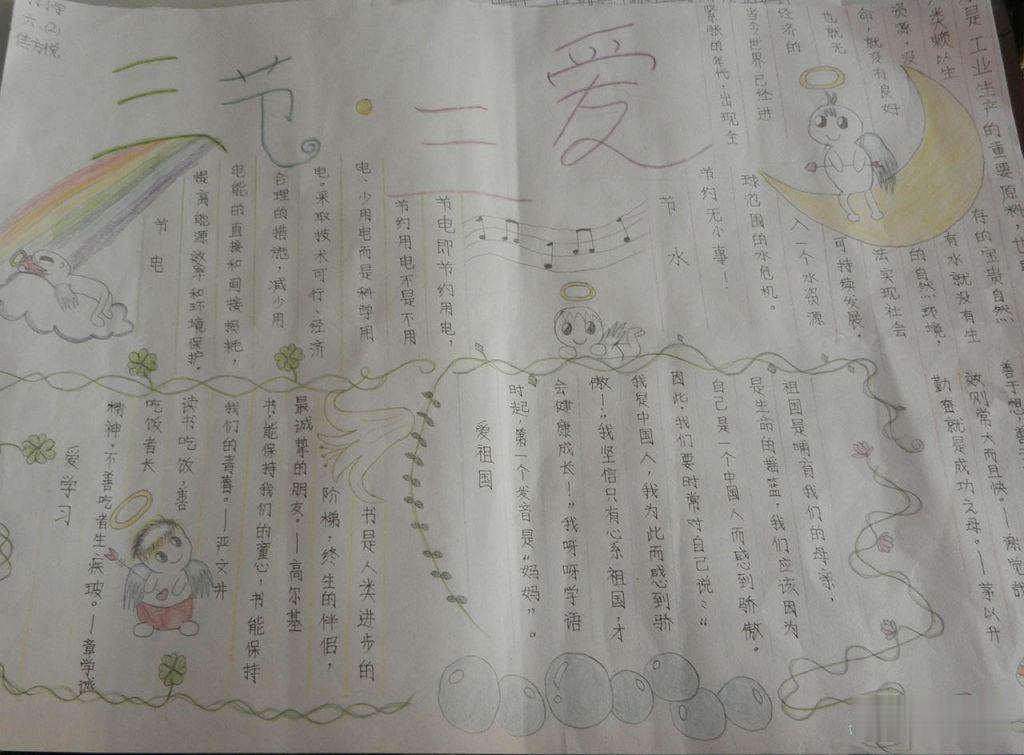 六(2)
二节·三爱
节水
是工业生产的重要原料，也
人类赖以生存的宝贵自然
资源，没有水就没有生
命，就没有良好的自然环境，
也就无法实现社会
经济的可持续发展。
当今世界已经进入一个水资源
紧张的年代，出现全球范围的水危机。
节约无小事！
节电
节电即节约用电，
节约用电不是不用
电、少用电而是科学用
电。采取技术可行、经济
合理的措施，减少用
电能的直接和间接损耗，
提高能源效率和环境保护。
善于想、善
效则常大而且快。—谢觉哉
勤奋就是成功之母。—茅以升
爱祖国
祖国是哺育我们的母亲，
是生命的摇篮，我们应该因为
自己是一个中国人而感到骄傲。
因此，我们要时常对自己说：“
我是中国人，我为此而感到骄
傲！”我坚信只有心系祖国，才
会健康成长！”我呀呀学语
时起，第一个发音是“妈妈”。
爱学习
书是人类进步的
阶梯，终生的伴侣，
最诚挚的朋友。—高尔基
书，能保持我们的童心，书能保持
我们的青春。—严文井
读书吃饭，善
吃饭者长
精神，不善吃者生疾玻。—章学诚